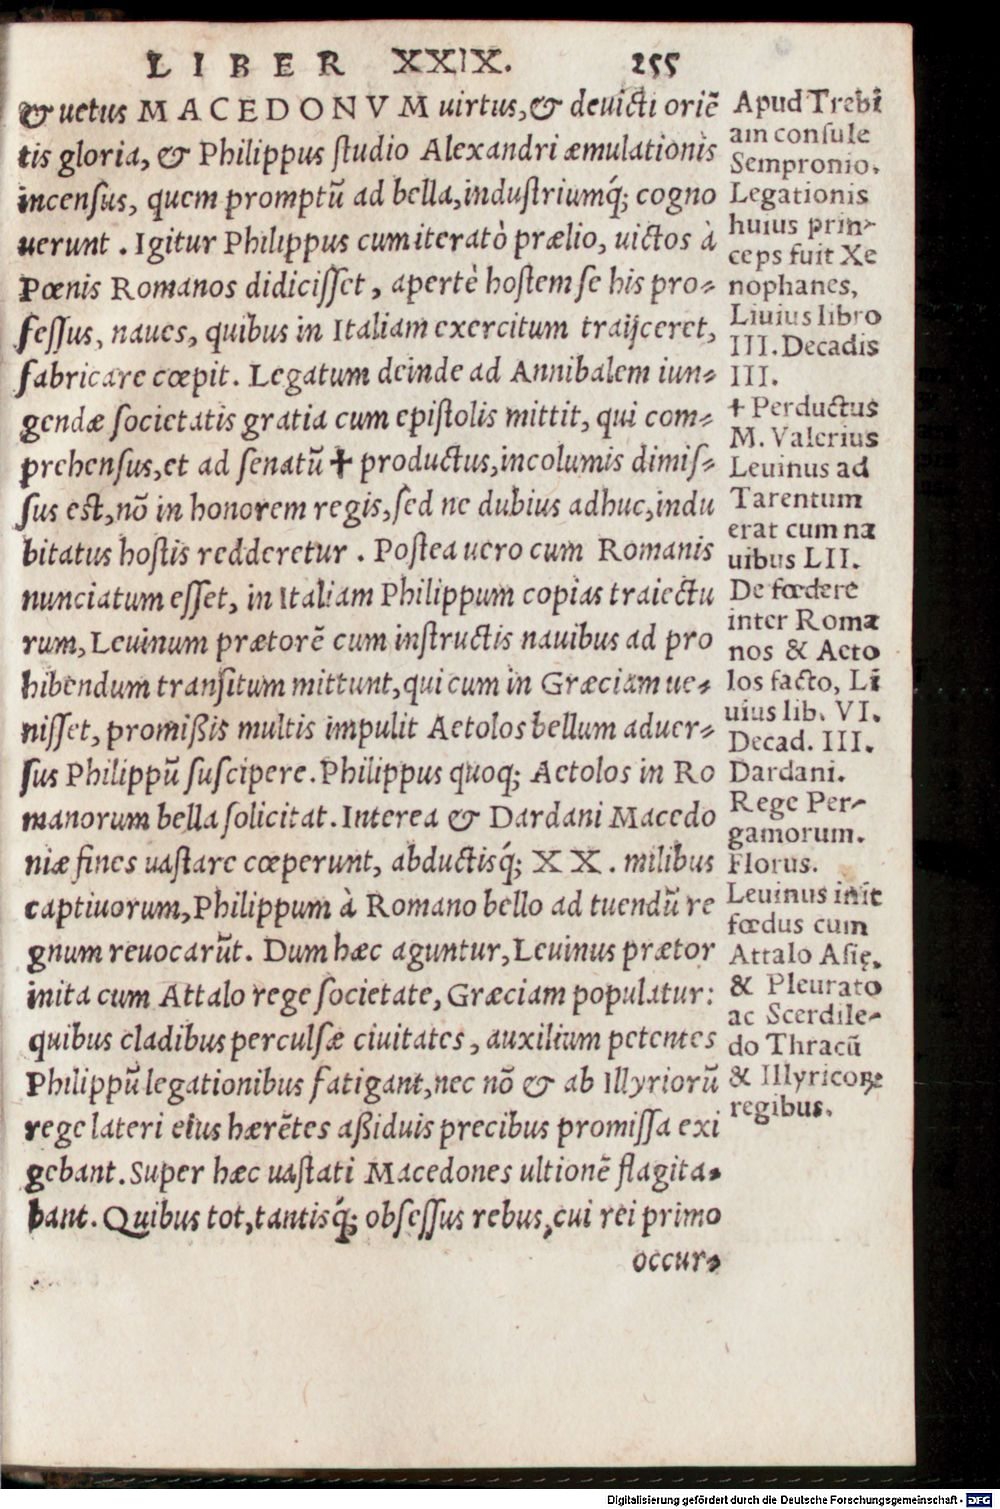 LIBER XXIX. 255
& uetus MACEDONVM uirtus, & deuicti oriē
tis gloria, & Philippus studio Alexandri æmulationis
incensus, quem promptū ad bella, industriumq́; cogno
uerunt. Igitur Philippus cum iteratò prælio, uictos à
Pœnis Romanos didicisset, apertè hostem se his pro-
fessus, naues, quibus in Italiam exercitum traijceret,
fabricare cœpit. Legatum deinde ad Annibalem iun-
gendæ societatis gratia cum epistolis mittit, qui com-
prehensus, et ad senatū ✝ productus, incolumis dimis-
sus est, nō in honorem regis, sed ne dubius adhuc, indu
bitatus hostis redderetur. Postea uero cum Romanis
nunciatum esset, in Italiam Philippum copias traiectu
rum, Leuinum prætorē cum instructis nauibus ad pro
hibendum transitum mittunt, qui cum in Græciam ue-
nisset, promißis multis impulit Aetolos bellum aduer-
sus Philippū suscipere. Philippus quoq; Aetolos in Ro
manorum bella solicitat. Interea & Dardani Macedo
niæ fines uastare cœperunt, abductisq́; XX. milibus
captiuorum, Philippum à Romano bello ad tuendū re
gnum reuocarūt. Dum hæc aguntur, Leuinus prætor
inita cum Attalo rege societate, Græciam populatur:
quibus cladibus perculsæ ciuitates, auxilium petentes
Philippū legationibus fatigant, nec nō & ab Illyriorū
rege lateri eius hærētes aßiduis precibus promissa exi
gebant. Super hæc uastati Macedones ultionē flagita-
bant. Quibus tot, tantisq́; obsessus rebus, cui rei primo
occur-
Apud Trebi
am consule
Sempronio.
Legationis
huius prin-
ceps fuit Xe
nophanes,
Liuius libro
III. Decadis
III.
✝ Perductus
M. Valerius
Leuinus ad
Tarentum
erat cum na
uibus LII.
De fœdere
inter Roma
nos & Aeto
los facto, Li
uius lib. VI.
Decad. III.
Dardani.
Rege Per-
gamorum.
Florus.
Leuinus iniit
fœdus cum
Attalo Asię.
& Pleurato
ac Scerdile-
do Thracū
& Illyricoꝝ
regibus.
Digitalisierung gefördert durch die Deutsche Forschungsgemeinschaft - DFG